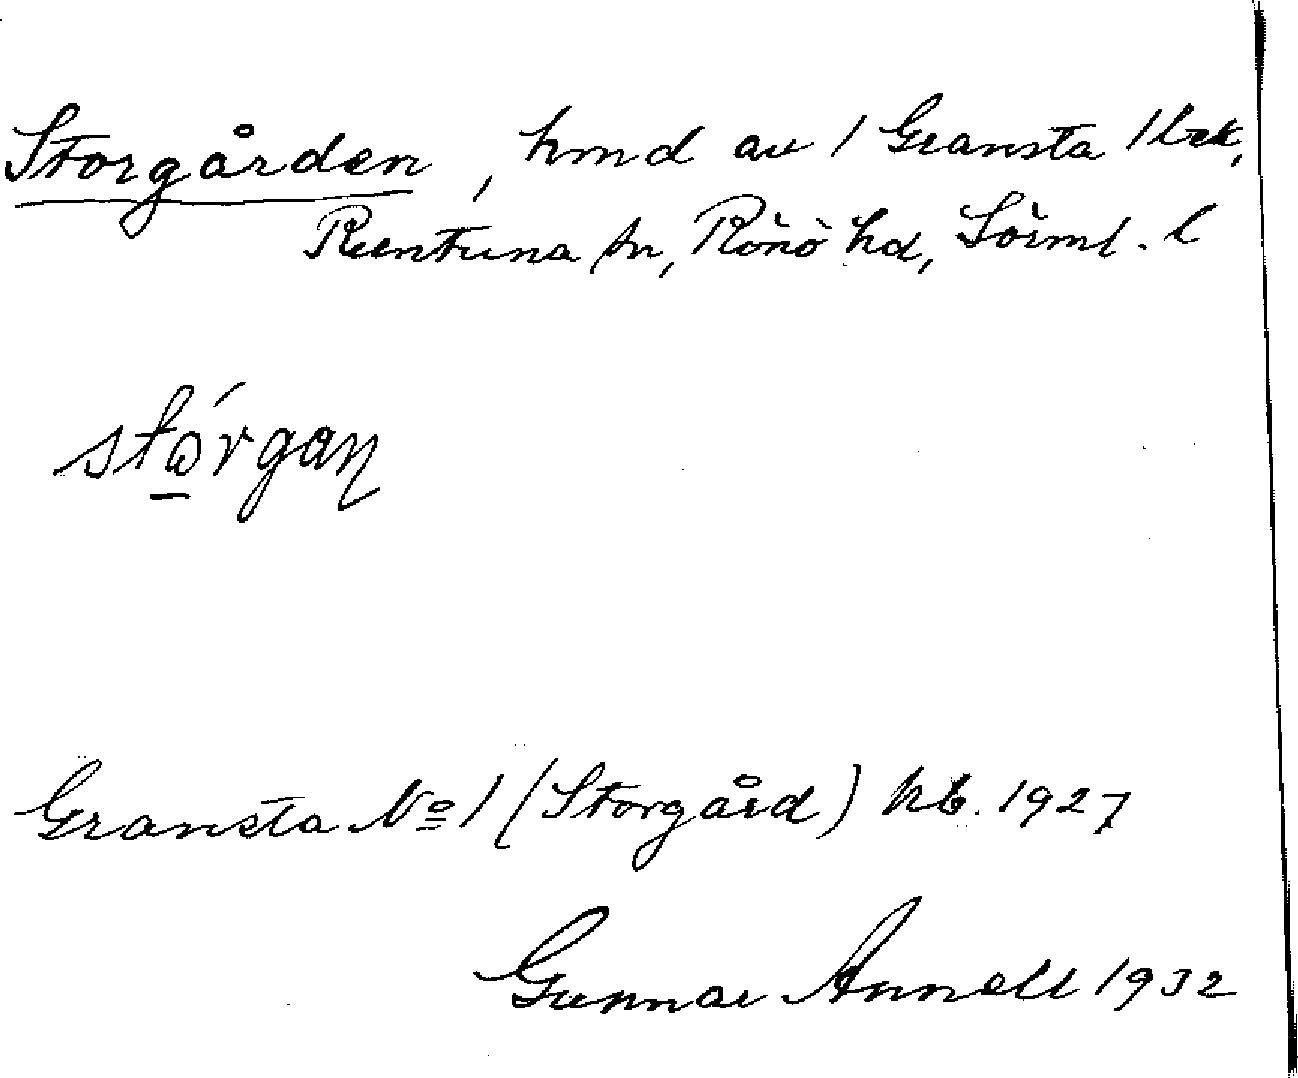 Storgården, hmd av 1 Gransta 1 bek,
Runtuna sn, Rönö hd, Sörml. l
stórgaɳ
Gransta No 1 (Storgård) kb. 1927
Gunnar Annell 1932